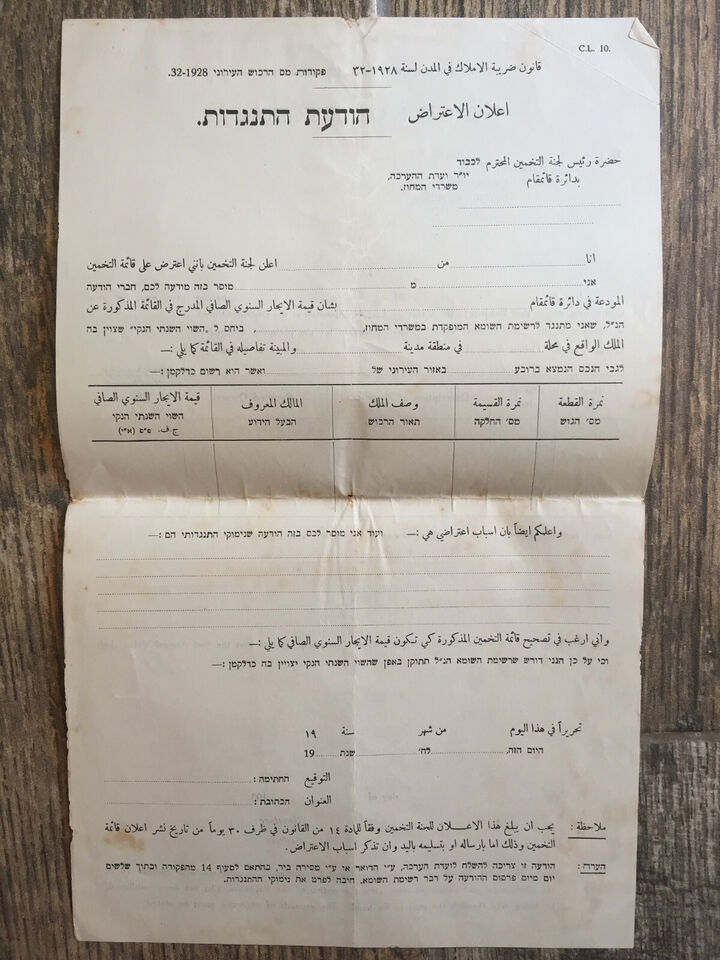 C.L. 10.
قانون ضريبة الاملاك في المدن لسنة ١٩٢٨-٣٢ פקודות מס הרכוש העירוני 32-1928.
اعلان الاعتراض הודעת התנגדות.
حضرة رئيس لجنة التخمين المحترم לכבוד
بدائرة قائمقام יו"ר ועדת ההערכה,
משרדי המחוז.
انا من اعلن لجنة التخمين بانني اعترض على قائمة التخمين
אני מ מוסר בזה מודעה לכם, חברי הועדה
المودعة في دائرة قائمقام بشان قيمة الايجار السنوي الصافي المدرج في القائمة المذكورة عن
הנ"ל, שאני מתנגד לרשימת השומא המופקדת במשרדי המחוז, , ביחס ל „השוי השנתי הנקי" שצוין בה
الملك الواقع في محلة في منطقة مدينة والمبينة تفاصيله في القائمة كما يلي :—
לגבי הנכס הנמצא ברובע באזור העירוני של ואשר הוא רשום כדלקמן :—
نمرة القطعة نمرة القسيمة وصف الملك المالك المعروف قيمة الايجار السنوي الصافي
מס' הגוש מס' החלקה תאור הרכוש הבעל הידוע השוי השנתי הנקי
ج.ف.
واعلمكم ايضاً بان اسباب اعتراضي هي :— ועוד אני מוסר לכם בזה הודעה שנימוקי התנגדותי הם :—
واني ارغب في تصحيح قائمة التخمين المذكورة كي تكون قيمة الايجار السنوي الصافي كما يلي :—
וכי על כן הנני דורש שרשימת השומא הנ"ל תתוקן באפן שהשוי השנתי הנקי יצויין בה כדלקמן :—
تحريراً في هذا اليوم من شهر سنة ١٩
היום הזה, לח' שנת 19
التوقيع החתימה :
العنوان הכתובת :
ملاحظة : يجب ان يبلغ هذا الاعلان للجنة التخمين وفقاً للمادة ١٤ من القانون في ظرف ٣٠ يوماً من تاريخ نشر اعلان قائمة
التخمين وذلك اما بارساله او بتسليمه باليد وان تذكر اسباب الاعتراض.
הערה : הודעה זו צריכה להשלח לועדת הערכה, ע"י הדואר או ע"י מסירה ביד, בהתאם לסעיף 14 מהפקודה ובתוך שלשים
יום מיום פרסום ההודעה על דבר רשימת השומא. חובה לפרט את נימוקי ההתנגדות.